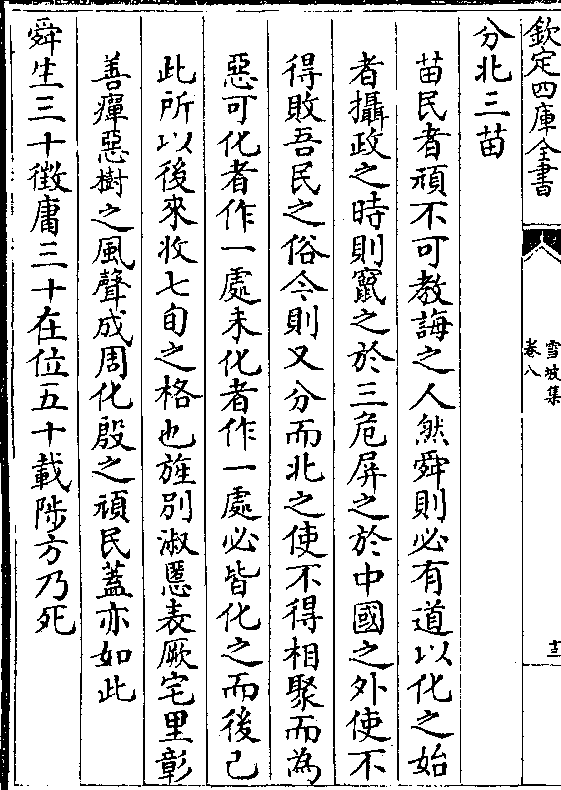 欽定四庫全書
雪坡集
卷八
十二
分北三苗
苗民者頑不可教誨之人然舜則必有道以化之始
者攝政之時則竄之於三危屏之於中國之外使不
得敗吾民之俗今則又分而北之使不得相聚而為
惡可化者作一處未化者作一處必皆化之而後已
此所以後來收七旬之格也旌别淑慝表厥宅里彰
善癉惡樹之風聲成周化殷之頑民蓋亦如此
舜生三十徵庸三十在位五十載陟方乃死